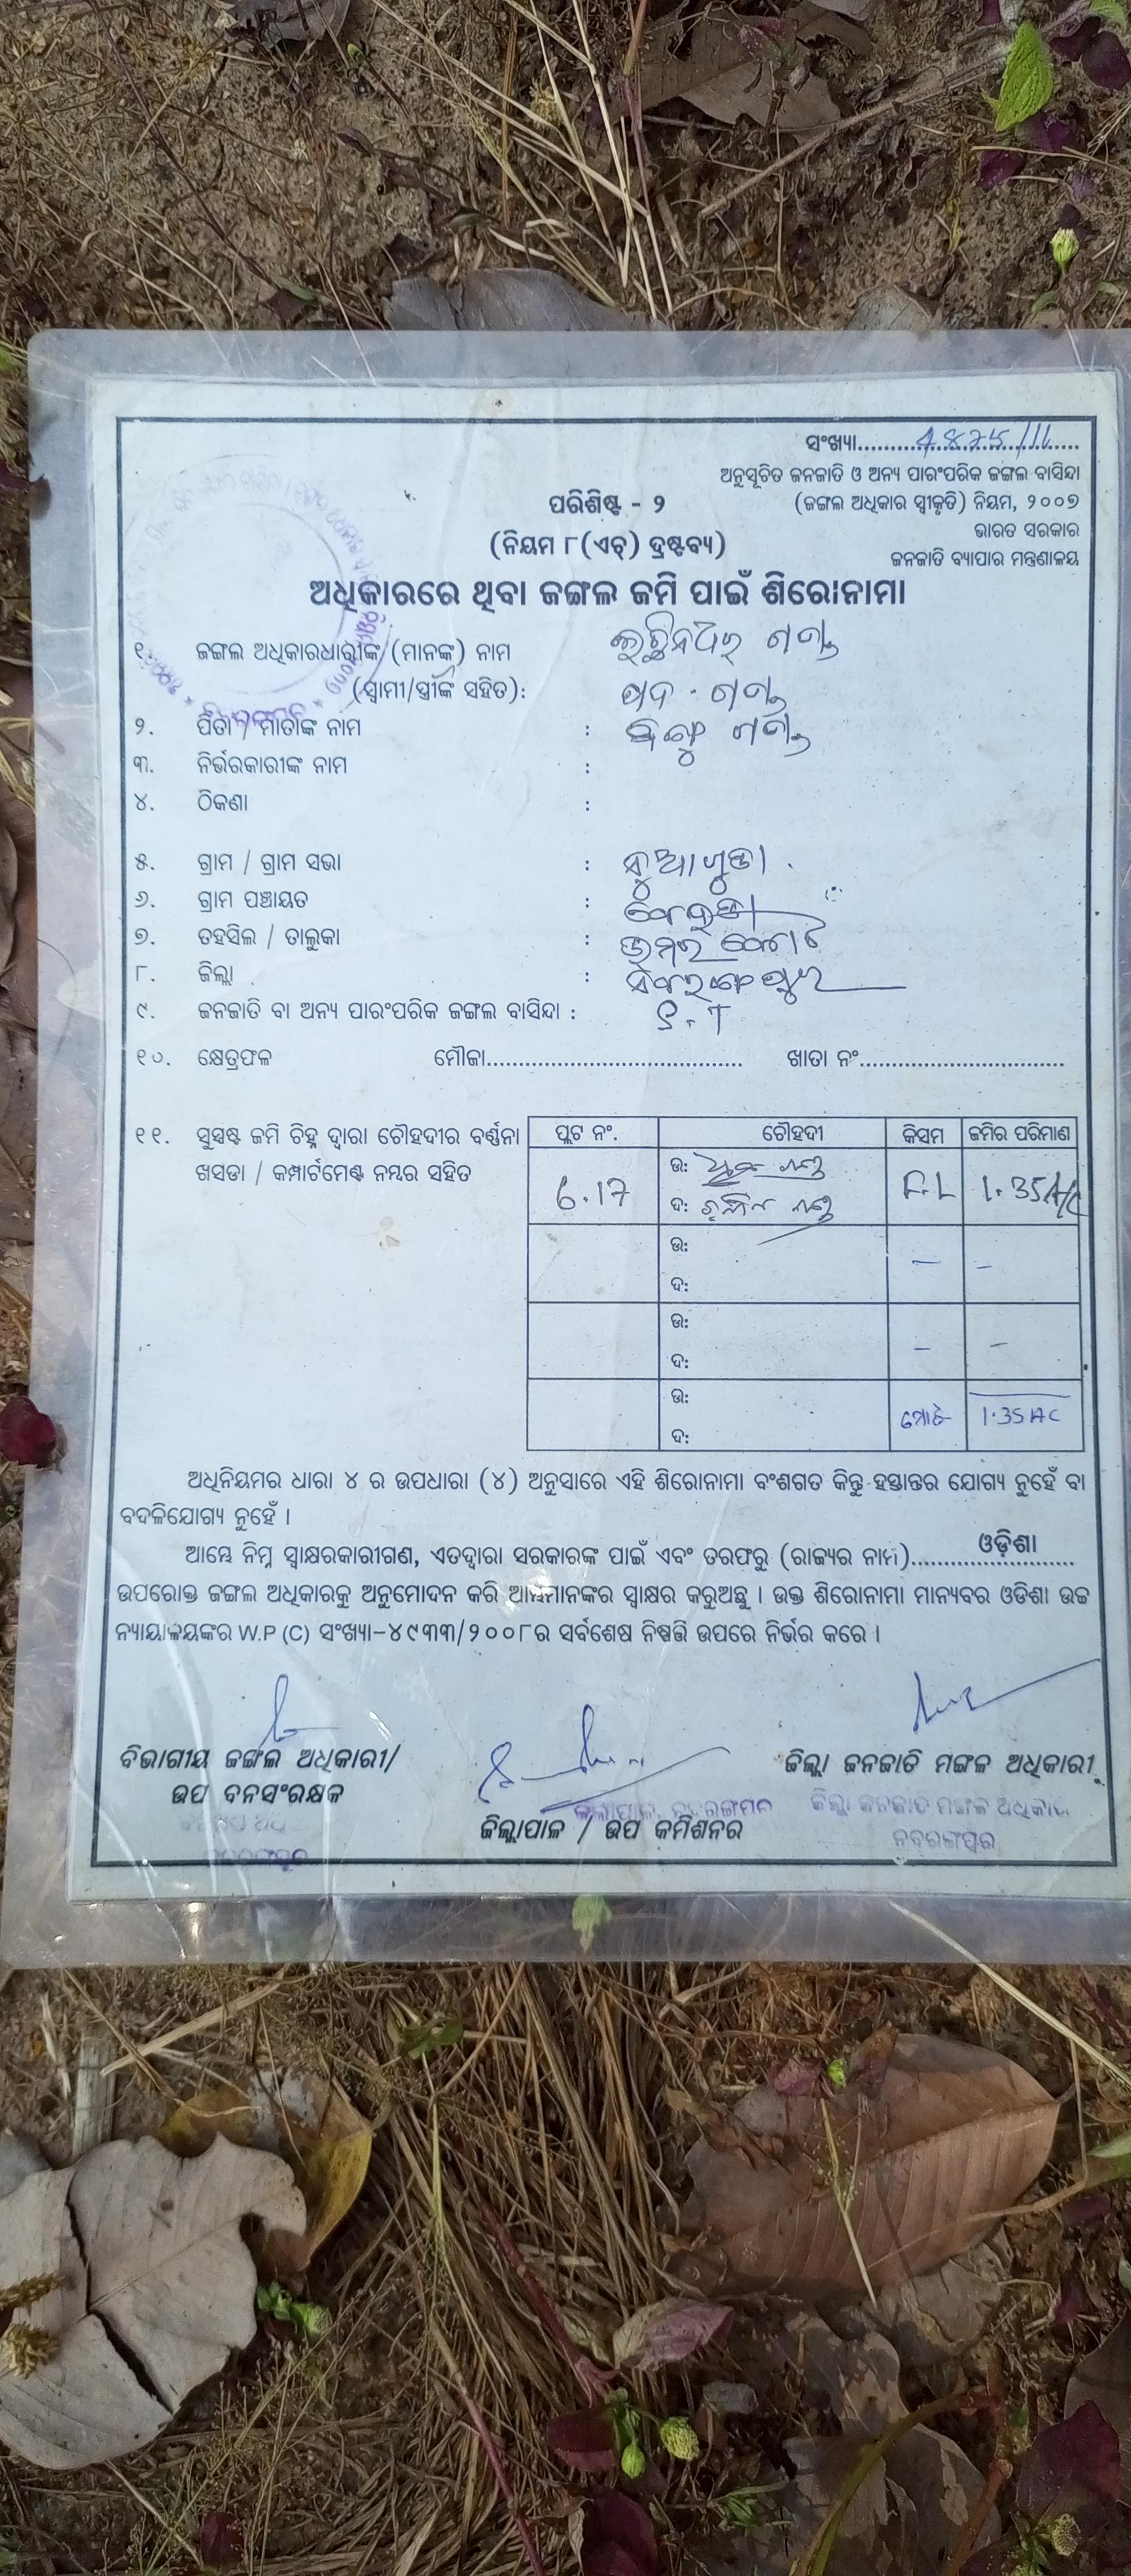 ସଂଖ୍ୟା....................
ଅନୁସୂଚିତ ଜନଜାତି ଓ ଅନ୍ୟ ପାରଂପରିକ ଜଙ୍ଗଲ ବାସିନ୍ଦା
ପରିଶିଷ୍ଟ - ୨
(ଜଙ୍ଗଲ ଅଧିକାର ସ୍ୱୀକୃତି) ନିୟମ, ୨୦୦୭
ଭାରତ ସରକାର
(ନିୟମ ୮(ଏଚ୍) ଦ୍ରଷ୍ଟବ୍ୟ)
ଜନଜାତି ବ୍ୟାପାର ମନ୍ତ୍ରଣାଳୟ
ଅଧିକାରରେ ଥିବା ଜଙ୍ଗଲ ଜମି ପାଇଁ ଶିରୋନାମା
୧. ଜଙ୍ଗଲ ଅଧିକାରଧାରୀଙ୍କ (ମାନଙ୍କ) ନାମ ଗଣ୍ଡ
(ସ୍ୱାମୀ/ସ୍ତ୍ରୀଙ୍କ ସହିତ): ଗଣ୍ଡ
୨. ପିତା / ମାତାଙ୍କ ନାମ : ଗଣ୍ଡ
୩. ନିର୍ଭରକାରୀଙ୍କ ନାମ :
୪. ଠିକଣା :
୫. ଗ୍ରାମ / ଗ୍ରାମ ସଭା : ନୁଆଗୁଡା
୬. ଗ୍ରାମ ପଞ୍ଚାୟତ :
୭. ତହସିଲ / ତାଲୁକା : ଉମରକୋଟ
୮. ଜିଲ୍ଲା : ନବରଙ୍ଗପୁର
୯. ଜନଜାତି ବା ଅନ୍ୟ ପାରଂପରିକ ଜଙ୍ଗଲ ବାସିନ୍ଦା : S.T
୧୦. କ୍ଷେତ୍ରଫଳ ମୌଜା.................... ଖାତା ନଂ....................
୧୧. ସୁସ୍ପଷ୍ଟ ଜମି ଚିହ୍ନ ଦ୍ୱାରା ଚୌହଦୀର ବର୍ଣ୍ଣନା
ଖସଡା / କମ୍ପାର୍ଟମେଣ୍ଟ ନମ୍ବର ସହିତ
ପ୍ଲଟ ନଂ. ଚୌହଦୀ କିସମ ଜମିର ପରିମାଣ
6.17 ଉ: ଗଣ୍ଡ F.L 1.35 A/C
ଦ: ଗଣ୍ଡ
ଉ: — —
ଦ:
ଉ: — —
ଦ:
ଉ: ମୋଟ 1.35 AC
ଦ:
ଅଧିନିୟମର ଧାରା ୪ ର ଉପଧାରା (୪) ଅନୁସାରେ ଏହି ଶିରୋନାମା ବଂଶଗତ କିନ୍ତୁ ହସ୍ତାନ୍ତର ଯୋଗ୍ୟ ନୁହେଁ ବା
ବଦଳିଯୋଗ୍ୟ ନୁହେଁ ।
ଆମ୍ଭେ ନିମ୍ନ ସ୍ୱାକ୍ଷରକାରୀଗଣ, ଏତଦ୍ୱାରା ସରକାରଙ୍କ ପାଇଁ ଏବଂ ତରଫରୁ (ରାଜ୍ୟର ନାମ)..........ଓଡ଼ିଶା..........
ଉପରୋକ୍ତ ଜଙ୍ଗଲ ଅଧିକାରକୁ ଅନୁମୋଦନ କରି ଆମ୍ଭମାନଙ୍କର ସ୍ୱାକ୍ଷର କରୁଅଛୁ । ଉକ୍ତ ଶିରୋନାମା ମାନ୍ୟବର ଓଡିଶା ଉଚ୍ଚ
ନ୍ୟାୟାଳୟଙ୍କର W.P (C) ସଂଖ୍ୟା-୪୯୩୩/୨୦୦୮ର ସର୍ବଶେଷ ନିଷ୍ପତ୍ତି ଉପରେ ନିର୍ଭର କରେ ।
ବିଭାଗୀୟ ଜଙ୍ଗଲ ଅଧିକାରୀ/
ଉପ ବନସଂରକ୍ଷକ
ଜିଲ୍ଲାପାଳ / ଉପ କମିଶନର
ଜିଲ୍ଲା ଜନଜାତି ମଙ୍ଗଳ ଅଧିକାରୀ
ଜିଲ୍ଲା ଜନଜାତି ମଙ୍ଗଳ ଅଧିକାରୀ
ନବରଙ୍ଗପୁର